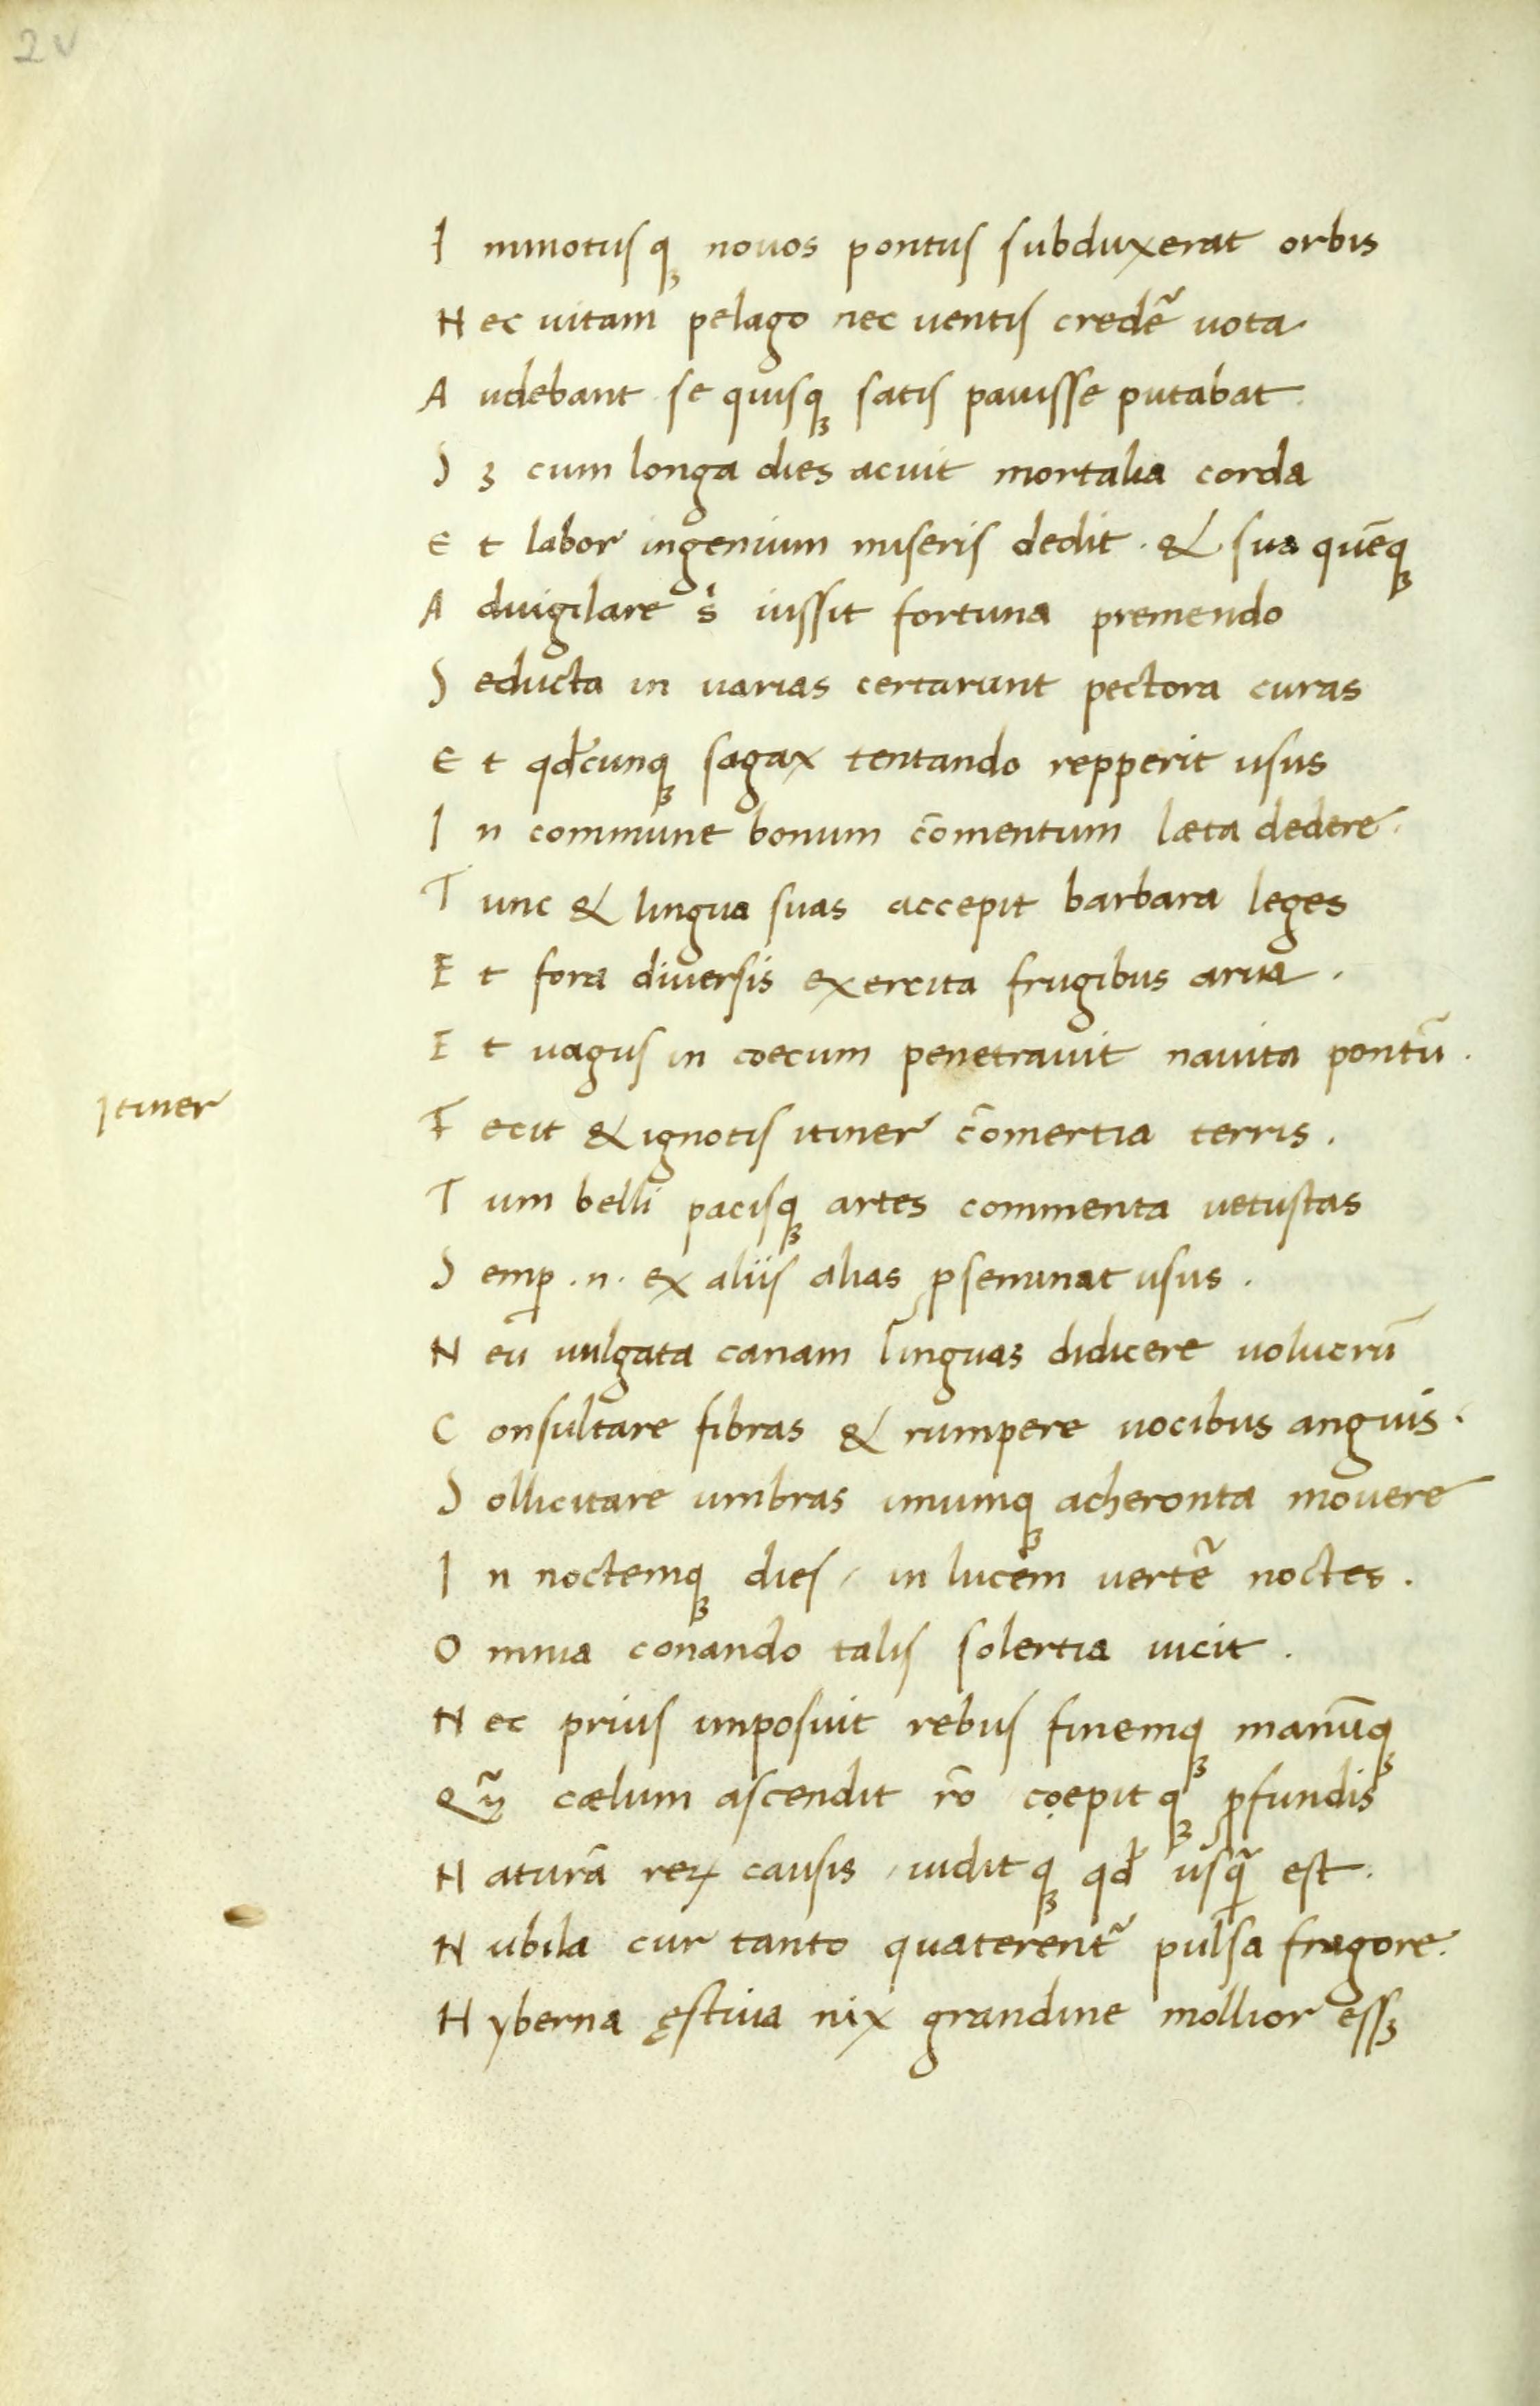 2v
I mmotusqꝫ nouos pontus subduxerat orbis
N ec uitam pelago nec uentis credẽ uota.
A udebant se quisqꝫ satis pauisse putabat.
S ꝫ cum longa dies acuit mortalia corda
E t labor ingenium miseris dedit . & sua quẽqꝫ
A duigilare s̓ iussit fortuna premendo
S educta in uarias certarunt pectora curas
E t qd̓cunqꝫ sagax tentando repperit usus
I n commune bonum cõmentum læta dedere.
T unc & lingua suas accepit barbara leges
E t fora diuersis exercita frugibus arua .
E t uagus in coecum penetrauit nauita pontũ .
Itiner
F ecit & ignotis itiner cõmertia terris .
T um belli pacisqꝫ artes commenta uetustas
S emp̱ .n. ex aliis alias ꝓseminat usus .
N eũ uulgata canam linguas didicere uolucrũ
C onsultare fibras & rumpere uocibus anguis .
S ollicitare umbras imumqꝫ acheronta mouere
I n noctemqꝫ dies / in lucem uertẽ noctes .
O mnia conando talis solertia uicit .
N ec prius imposuit rebus finemqꝫ manũqꝫ
Q ̃ꝫ cælum ascendit rõ coepitqꝫ ꝓfundis
N aturã reꝝ causis / uiditqꝫ qd̓ usq̃ est .
N ubila cur tanto quaterent̃ pulsa fragore.
H yberna ęstiua nix grandine mollior essꝫ